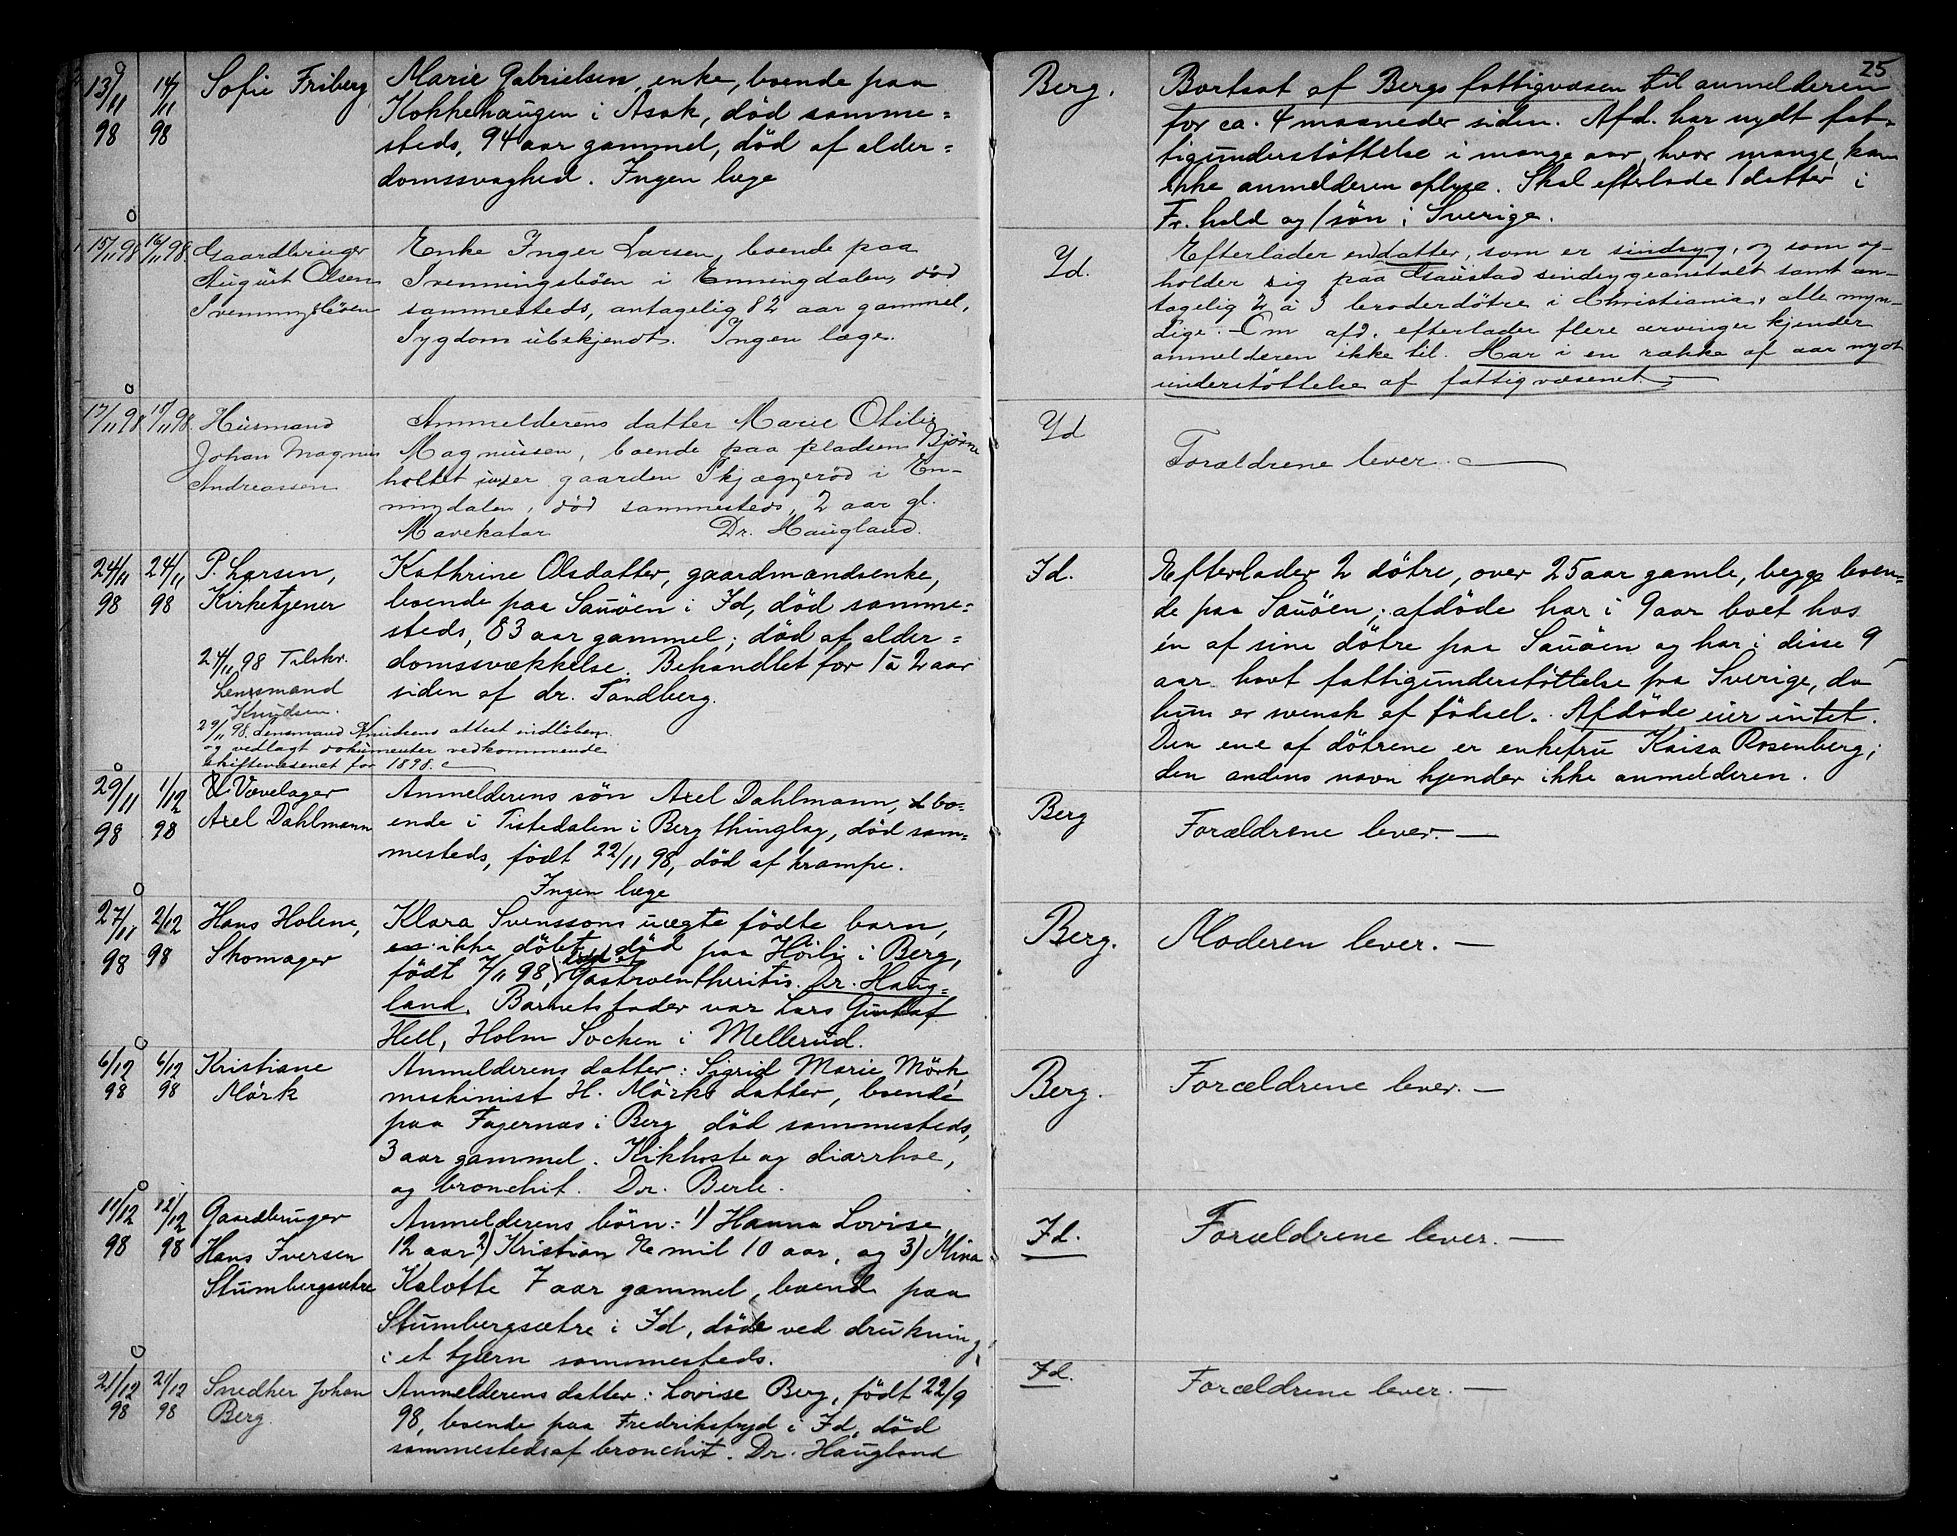 25
13/11 98 14/11 98 Sofie Friberg
Marie Gabrielsen, enke, boende paa
Kokkehaugen i Asak, død samme=
steds, 94 aar gammel, død af alder=
domssvaghed. Ingen læge
Berg.
Bortsat af Bergs fattigvæsen til anmelderen
for ca. 4 maaneder siden. Afd. har nydt fat-
tigunderstöttelse i mange aar, hvor mange kan
ikke anmelderen oplyse. Skal efterlade 1 datter i
Fr.hald og 1 sön i Sverige.
15/11 98 16/11 98 Gaardbruger
August Olsen
Svenningsböen
Enke Inger Larsen, boende paa
Svenningsböen i Enningdalen, död
sammesteds, antagelig 82 aar gammel,
Sygdom ubekjendt. Ingen læge.
Id.
Efterlader en datter, som er sindsyg, og som op-
holder sig paa Gaustad sindsygeanstalt samt an-
tagelig 2 à 3 broderdötre i Christiania, alle myn-
dige. Om afd. efterlader flere arvinger kjender
anmelderen ikke til. Har i en række af aar nydt
understöttelse af fattigvæsenet.
17/11 98 17/11 98 Husmand
Johan Magnus
Andreassen
Anmelderens datter Marie Otilie
Magnussen, boende paa pladsen Björne
holtet under gaarden Skjæggeröd i En-
ningdalen, död sammesteds, 2 aar gl.
Mavekatar Dr. Haugland.
Id
Forældrene lever.
24/11 98 24/11 98 P. Larsen,
Kirketjener
24/11 98 Tilskr.
Lensmand
Knudsen.
29/11 98. Lensmand Knudsens attest indlöben
og vedlagt dokumenter vedkommende
skiftevæsenet for 1898.
Kathrine Olsdatter, gaardmandsenke,
boende paa Sauöen i Id, död samme=
steds, 83 aar gammel; död af alder=
domssvækkelse. Behandlet for 1 à 2 aar
siden af dr. Sandberg.
Id.
Efterlader 2 dötre, over 25 aar gamle, begge boen=
de paa Sauöen; afdöde har i 9 aar boet hos
én af sine dötre paa Sauöen og har i disse 9
aar havt fattigunderstöttelse fra Sverige, da
hun er svensk af födsel. Afdöde eier intet.
Den ene af dötrene er enkefru Kaisa Rosenberg;
den andens navn kjender ikke anmelderen.
29/11 98 1/12 98 Vævelager
Axel Dahlmann
Anmelderens sön Axel Dahlmann, bo=
ende i Tistedalen i Berg thinglag, död sam=
mesteds, födt 22/11 98, död af krampe.
Ingen læge
Berg
Forældrene lever.
27/11 98 2/12 98 Hans Holene,
Skomager
Klara Svenssons uægte födte barn,
ikke döbt, död paa Höili i Berg,
födt 7/11 98, död af Gastroentheritis. Dr. Haug=
land. Barnets fader var Lars Gustaf
Hell, Holm Socken i Mellerud.
Berg.
Moderen lever.
6/12 98 6/12 98 Kristiane
Mörk
Anmelderens datter: Sigrid Marie Mörk,
maskinist H. Mörks datter, boende
paa Fajernæs i Berg, död sammesteds,
3 aar gammel. Kikhoste og diarrhoe,
og bronchit. Dr. Berle.
Berg.
Forældrene lever.
11/12 98 12/12 98 Gaardbruger
Hans Iversen
Stumbergsætre
Anmelderens börn: 1) Hanna Lovise,
12 aar 2) Kristian Emil 10 aar, og 3) Mina
Kalotte 7 aar gammel, boende paa
Stumbergsætre i Id, döde ved drukning
i et tjern sammesteds.
Id.
Forældrene lever.
21/12 98 21/12 98 Snedker Johan
Berg.
Anmelderens datter: Lovise Berg, födt 22/9
98, boende paa Fredriksfryd i Id, död
sammesteds af bronchit. Dr. Haugland
Id.
Forældrene lever.